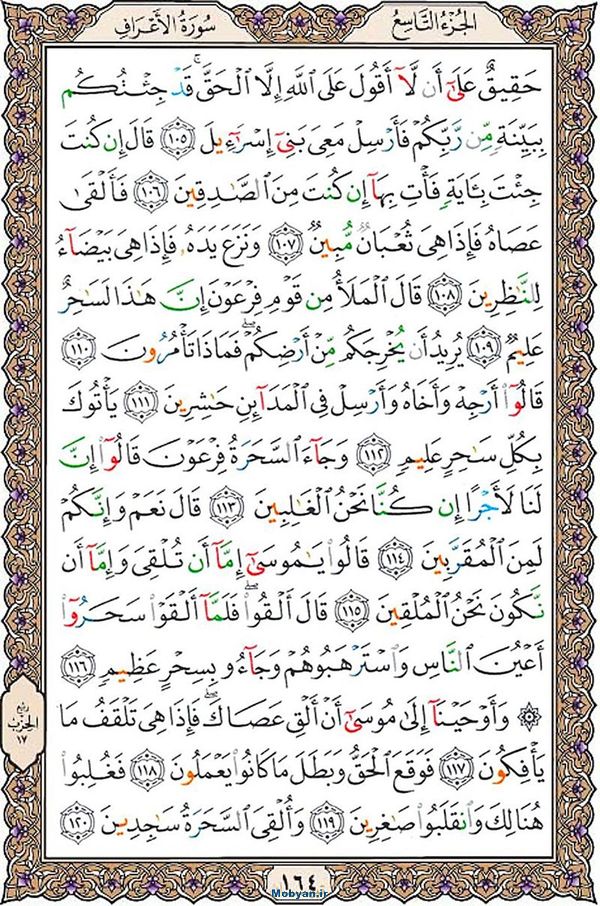 الجُزْءُ التَّاسِعُ
سُورَةُ الأَعْرَافِ
حَقِيقٌ عَلَىٰٓ أَن لَّآ أَقُولَ عَلَى ٱللَّهِ إِلَّا ٱلْحَقَّۚ قَدْ جِئْتُكُم
بِبَيِّنَةٍ مِّن رَّبِّكُمْ فَأَرْسِلْ مَعِىَ بَنِىٓ إِسْرَٰٓءِيلَ ١٠٥ قَالَ إِن كُنتَ
جِئْتَ بِـَٔايَةٍ فَأْتِ بِهَآ إِن كُنتَ مِنَ ٱلصَّـٰدِقِينَ ١٠٦ فَأَلْقَىٰ
عَصَاهُ فَإِذَا هِىَ ثُعْبَانٌ مُّبِينٌ ١٠٧ وَنَزَعَ يَدَهُۥ فَإِذَا هِىَ بَيْضَآءُ
لِلنَّـٰظِرِينَ ١٠٨ قَالَ ٱلْمَلَأُ مِن قَوْمِ فِرْعَوْنَ إِنَّ هَـٰذَا لَسَـٰحِرٌ
عَلِيمٌ ١٠٩ يُرِيدُ أَن يُخْرِجَكُم مِّنْ أَرْضِكُمْۖ فَمَاذَا تَأْمُرُونَ ١١٠
قَالُوٓا۟ أَرْجِهْ وَأَخَاهُ وَأَرْسِلْ فِى ٱلْمَدَآئِنِ حَـٰشِرِينَ ١١١ يَأْتُوكَ
بِكُلِّ سَـٰحِرٍ عَلِيمٍ ١١٢ وَجَآءَ ٱلسَّحَرَةُ فِرْعَوْنَ قَالُوٓا۟ إِنَّ
لَنَا لَأَجْرًا إِن كُنَّا نَحْنُ ٱلْغَـٰلِبِينَ ١١٣ قَالَ نَعَمْ وَإِنَّكُمْ
لَمِنَ ٱلْمُقَرَّبِينَ ١١٤ قَالُوا۟ يَـٰمُوسَىٰٓ إِمَّآ أَن تُلْقِىَ وَإِمَّآ أَن
نَّكُونَ نَحْنُ ٱلْمُلْقِينَ ١١٥ قَالَ أَلْقُوا۟ۖ فَلَمَّآ أَلْقَوْا۟ سَحَرُوٓا۟
أَعْيُنَ ٱلنَّاسِ وَٱسْتَرْهَبُوهُمْ وَجَآءُو بِسِحْرٍ عَظِيمٍ ١١٦
۞ وَأَوْحَيْنَآ إِلَىٰ مُوسَىٰٓ أَنْ أَلْقِ عَصَاكَۖ فَإِذَا هِىَ تَلْقَفُ مَا
يَأْفِكُونَ ١١٧ فَوَقَعَ ٱلْحَقُّ وَبَطَلَ مَا كَانُوا۟ يَعْمَلُونَ ١١٨ فَغُلِبُوا۟
هُنَالِكَ وَٱنقَلَبُوا۟ صَـٰغِرِينَ ١١٩ وَأُلْقِىَ ٱلسَّحَرَةُ سَـٰجِدِينَ ١٢٠
ربع
الحزب
١٧
١٦٤
Mobyan.ir